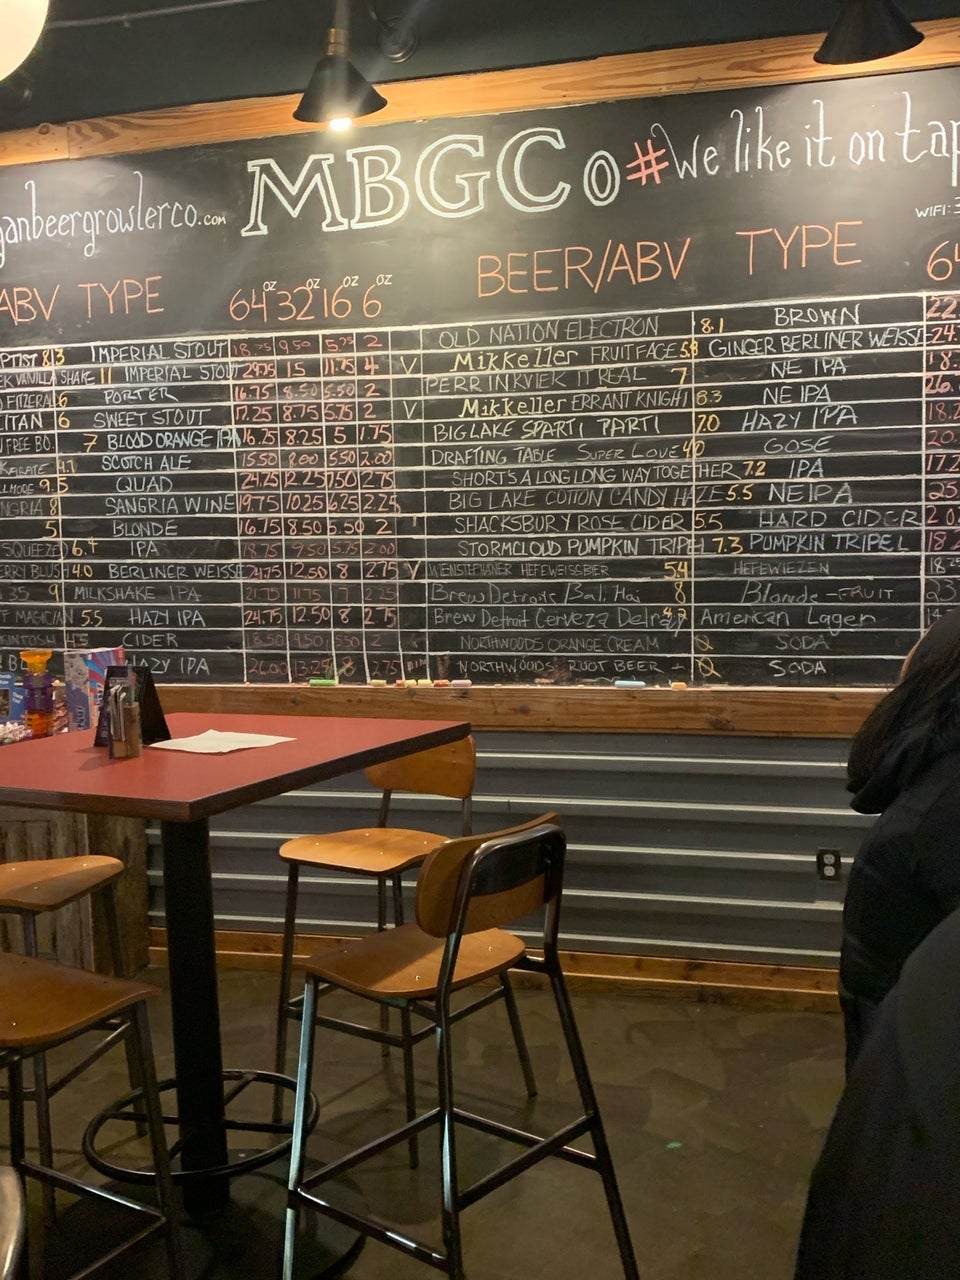 MBGCo #We like it on tap
ganbeergrowlerco.com
WIFI:
ABV TYPE 64oz 32oz 16oz 6oz
BEER/ABV TYPE 64
PTIST 8.3 IMPERIAL STOUT 18.75 9.50 5.25 2
VANILLA SHAKE 11 IMPERIAL STOUT 29.75 15 11.75 4
FITZGERAL 6 PORTER 16.75 8.50 5.50 2
LITAN 6 SWEET STOUT 17.25 8.75 5.75 2
FREE BO. 7 BLOOD ORANGE IPA 16.75 8.25 5 1.75
SCOTCH ALE 15.50 8.00 5.50 2.00
9.5 QUAD 24.75 12.25 7.50 2.75
NGRIA 8 SANGRIA WINE 19.75 10.25 6.25 2.25
5 BLONDE 16.75 8.50 5.50 2
SQUEEZE) 6.4 IPA 18.75 9.50 5.75 2.00
RRY BLUSH 4.0 BERLINER WEISSE 24.75 12.50 8 2.75
35 9 MILKSHAKE IPA 21.75 11.75 7 2.25
F MAGICIAN 5.5 HAZY IPA 24.75 12.50 8 2.75
KINTOSH 4.5 CIDER 8.50 9.50 5.50 2
HAZY IPA 26.00 13.25 8 2.75
OLD NATION ELECTRON 8.1 BROWN 22.
V Mikkeller FRUIT FACE 5.8 GINGER BERLINER WEISSE 24.
PERRIN KVIEK IT REAL 7 NE IPA
V Mikkeller ERRANT KNIGHT 6.3 NE IPA 26.
BIG LAKE SPARTI PARTI 7.0 HAZY IPA 18.2
DRAFTING TABLE SUPER LOVE 4.0 GOSE 20.
SHORT'S A LONG LONG WAY TOGETHER 7.2 IPA 17.2
BIG LAKE COTTON CANDY HAZE 5.5 NEIPA 25
SHACKSBURY ROSE CIDER 5.5 HARD CIDER
STORMCLOUD PUMPKIN TRIPEL 7.3 PUMPKIN TRIPEL 18.2
V WEINSTEPHANER HEFEWEISSBIER 5.4 HEFEWIEZEN 18.
Brew Detroit Bali Hai 8 Blonde - FRUIT 23
Brew Detroit Cerveza Delray 4.2 American Lager
NORTHWOODS ORANGE CREAM 0 SODA
NORTHWOODS ROOT BEER 0 SODA